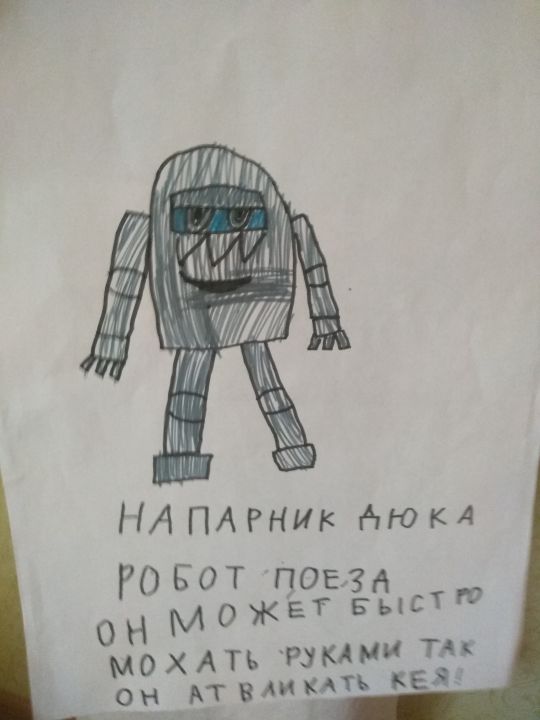 НАПАРНИК ДЮКА
РОБОТ ПОЕЗА
ОН МОЖЕТ БЫСТРО
МОХАТЬ РУКАМИ ТАК
ОН АТВЛИКАТЬ КЕЯ!